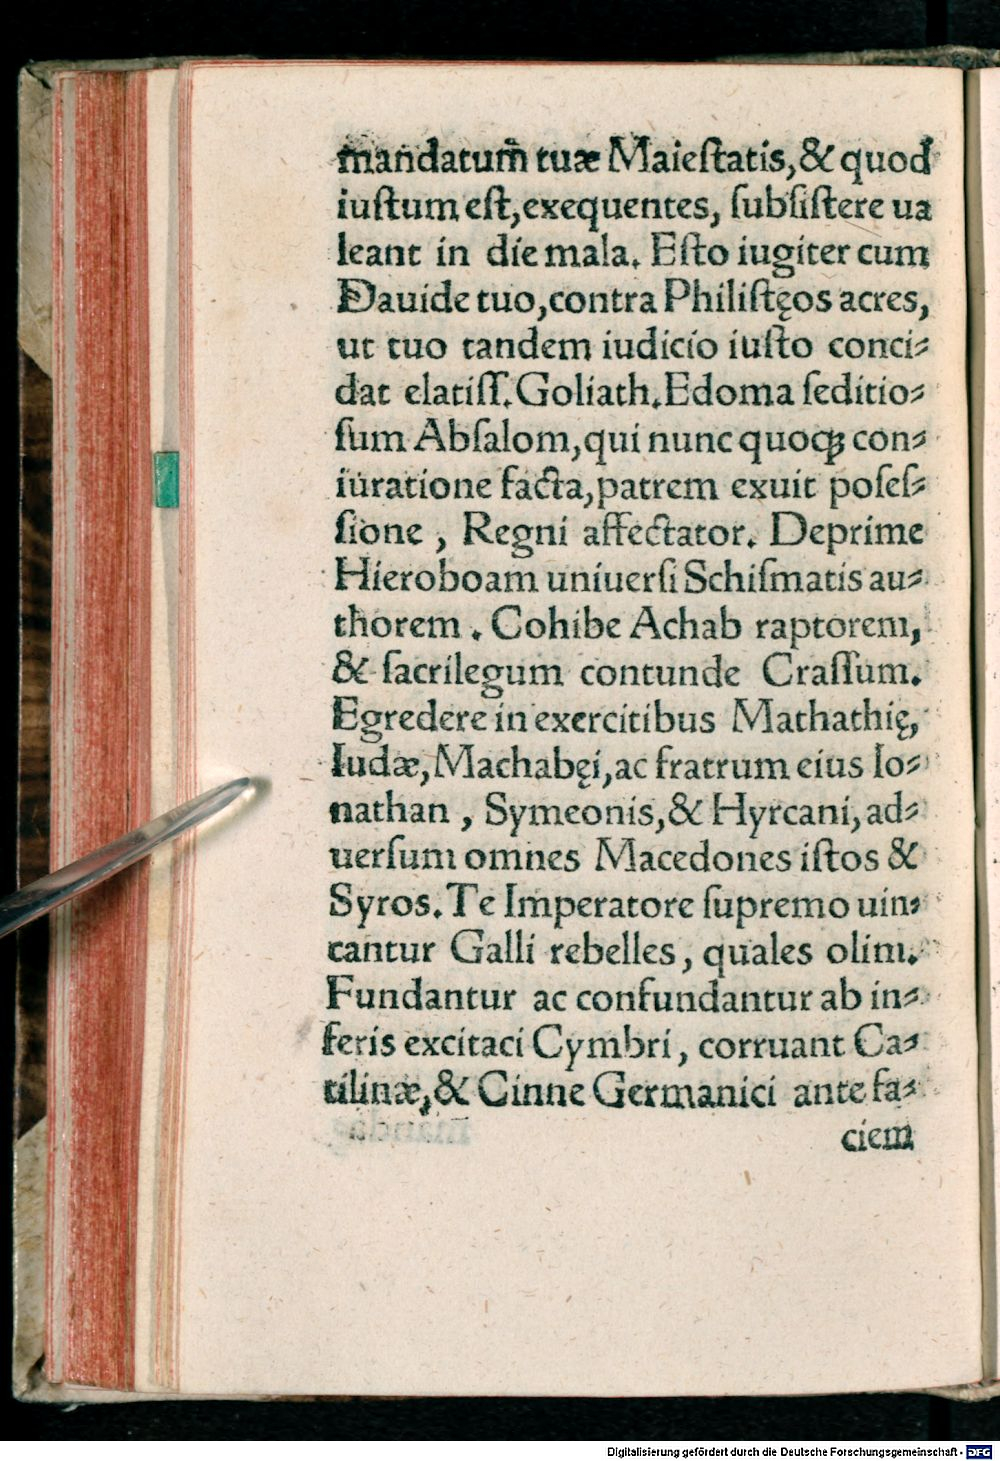 mandatum tuæ Maiestatis, & quod
iustum est, exequentes, subsistere ua
leant in die mala. Esto iugiter cum
Dauide tuo, contra Philistęos acres,
ut tuo tandem iudicio iusto conci⸗
dat elatiss. Goliath. Edoma seditio⸗
sum Absalom, qui nunc quoqꝫ con⸗
iuratione facta, patrem exuit poses⸗
sione , Regni affectator. Deprime
Hieroboam uniuersi Schismatis au⸗
thorem . Cohibe Achab raptorem,
& sacrilegum contunde Crassum.
Egredere in exercitibus Mathathię,
Iudæ, Machabęi, ac fratrum eius Io⸗
nathan , Symeonis, & Hyrcani, ad⸗
uersum omnes Macedones istos &
Syros. Te Imperatore supremo uin⸗
cantur Galli rebelles, quales olim.
Fundantur ac confundantur ab in⸗
feris excitaci Cymbri, corruant Ca⸗
tilinæ, & Cinne Germanici ante fa⸗
ciem
Digitalisierung gefördert durch die Deutsche Forschungsgemeinschaft - DFG